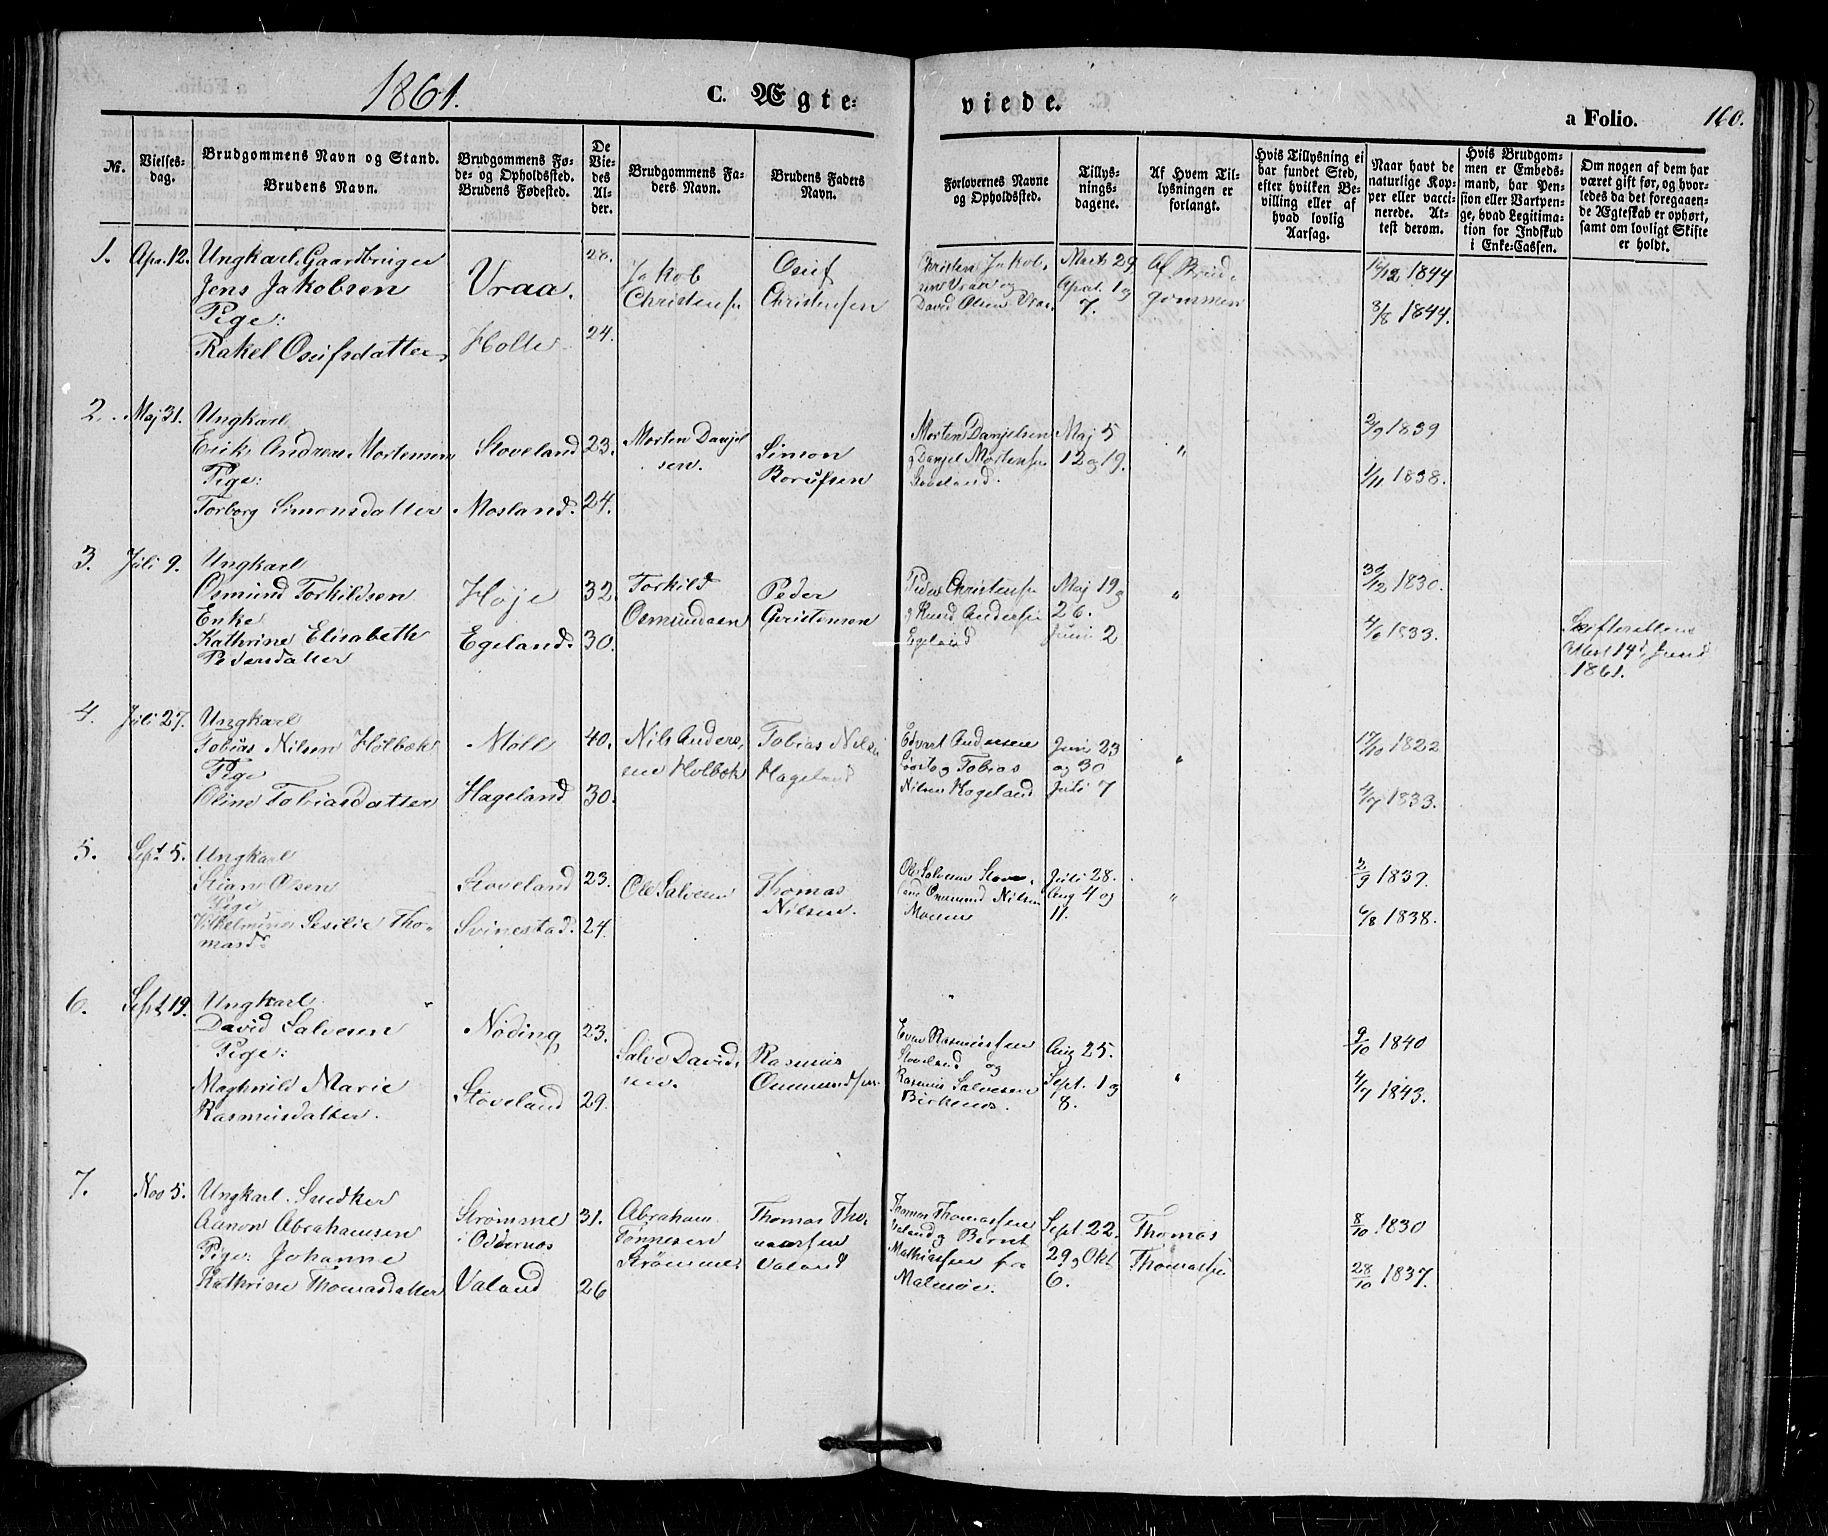 1861.
C. Ægte-
viede.
a Folio.
160.
№.
Vielses-
dag.
Brudgommens Navn og Stand.
Brudens Navn.
Brudgommens Fø-
de- og Opholdssted.
Brudens Fødested.
De
Vie-
des
Al-
der.
Brudgommens Fa-
ders Navn.
Brudens Faders
Navn.
Forlovernes Navne
og Opholdssted.
Tillys-
nings-
dagene.
Af Hvem Til-
lysningen er
forlangt.
Hvis Tillysning ei
har fundet Sted,
efter hvilken Be-
villing eller af
hvad lovlig
Aarsag.
Naar havt de
naturlige Kop-
per eller vacci-
nerede. At-
test derom.
Hvis Brudgom-
men er Embeds-
mand, har Pen-
sion eller Vartpen-
ge, hvad Legitima-
tion for Indskud
i Enke-Cassen.
Om nogen af dem har
været gift før, og hvor-
ledes da det foregaaen-
de Ægteskab er ophørt,
samt om lovligt Skifte
er holdt.
1.
Apr. 12.
Ungkarl, Gaardbruger
Jens Jakobsen
Pige:
Rakel Osufsdatter
Vraa.
Holte
28.
24.
Jakob
Christens.
Osuf
Christensen
Christen Jakob-
sen Vraa og
David Olsen Vraa.
Marts 29
April 1 og
7.
Af Brud-
gommen
1844
3/8 1844.
2.
Maj 31.
Ungkarl
Erik Andreas Mortensen
Pige:
Torborg Simonsdatter
Stoveland
Mosland.
23.
24.
Morten Danjel
sen.
Simon
Borufsen
Morten Danjelsen
og Danjel Mortensen
Stoveland.
Maj 5
12 og 19.
"
2/9 1839
1/11 1838.
3.
Juli 9.
Ungkarl
Osmund Torkildsen
Enke
Kathrine Elisabeth
Pedersdatter
Høje
Egeland.
32.
30.
Torkild
Osmundsen
Peder
Christensen
Peder Christensen
og Knud Andersen
Egeland
Maj 19 og
26.
Juni 2
"
30/12 1830.
4/6 1833.
Skifterettens
Attest 14d Juni
1861.
4.
Juli 27.
Ungkarl
Tobias Nilsen Holbæk
Pige
Oline Tobiasdatter
Moll
Hageland
40.
30.
Nils Anders-
sen Holbæk
Tobias Nilsen
Hageland
Edvart Andersen
og Tobias
Nilsen Hageland
Juni 23
og 30
Juli 7
"
17/10 1822
4/7 1833.
5.
Sept 5.
Ungkarl
Stian Olsen
Pige
Vilhelmine Sesilie Tho-
masd.
Stoveland
Svinestad.
23.
24.
Ole Salvesen
Thomas
Nilsen.
Ole Salvesen Stove-
land Nilsen
Moeen
Juli 28.
Aug 4 og
11.
"
2/9 1839.
6/8 1838.
6.
Sept 19.
Ungkarl
David Salvesen
Pige:
Maghrild Marie
Rasmusdatter.
Nøding
Stoveland
23.
29.
Salve David-
sen.
Rasmus
Gunmundsen
Even Rasmussen
Stoveland og
Rasmus Salvesen
Birkenes.
Aug 25.
Sept. 1 og
8.
"
9/10 1840
4/7 1843.
7.
Nov 5.
Ungkarl. Snedker
Aanon Abrahamsen
Pige: Johanne
Kathrine Thomasdatter
Strømme
i Oddernes
Valand
31.
26
Abraham
Tønnesen
Strømme
Thomas Tho-
massen
Valand
Thomas Thomassen
Valand og Bernt
Mathiassen fra
Malmøe.
Sept 22.
29 og Okt
6.
Thomas
Thomassen
8/10 1830
28/10 1837.